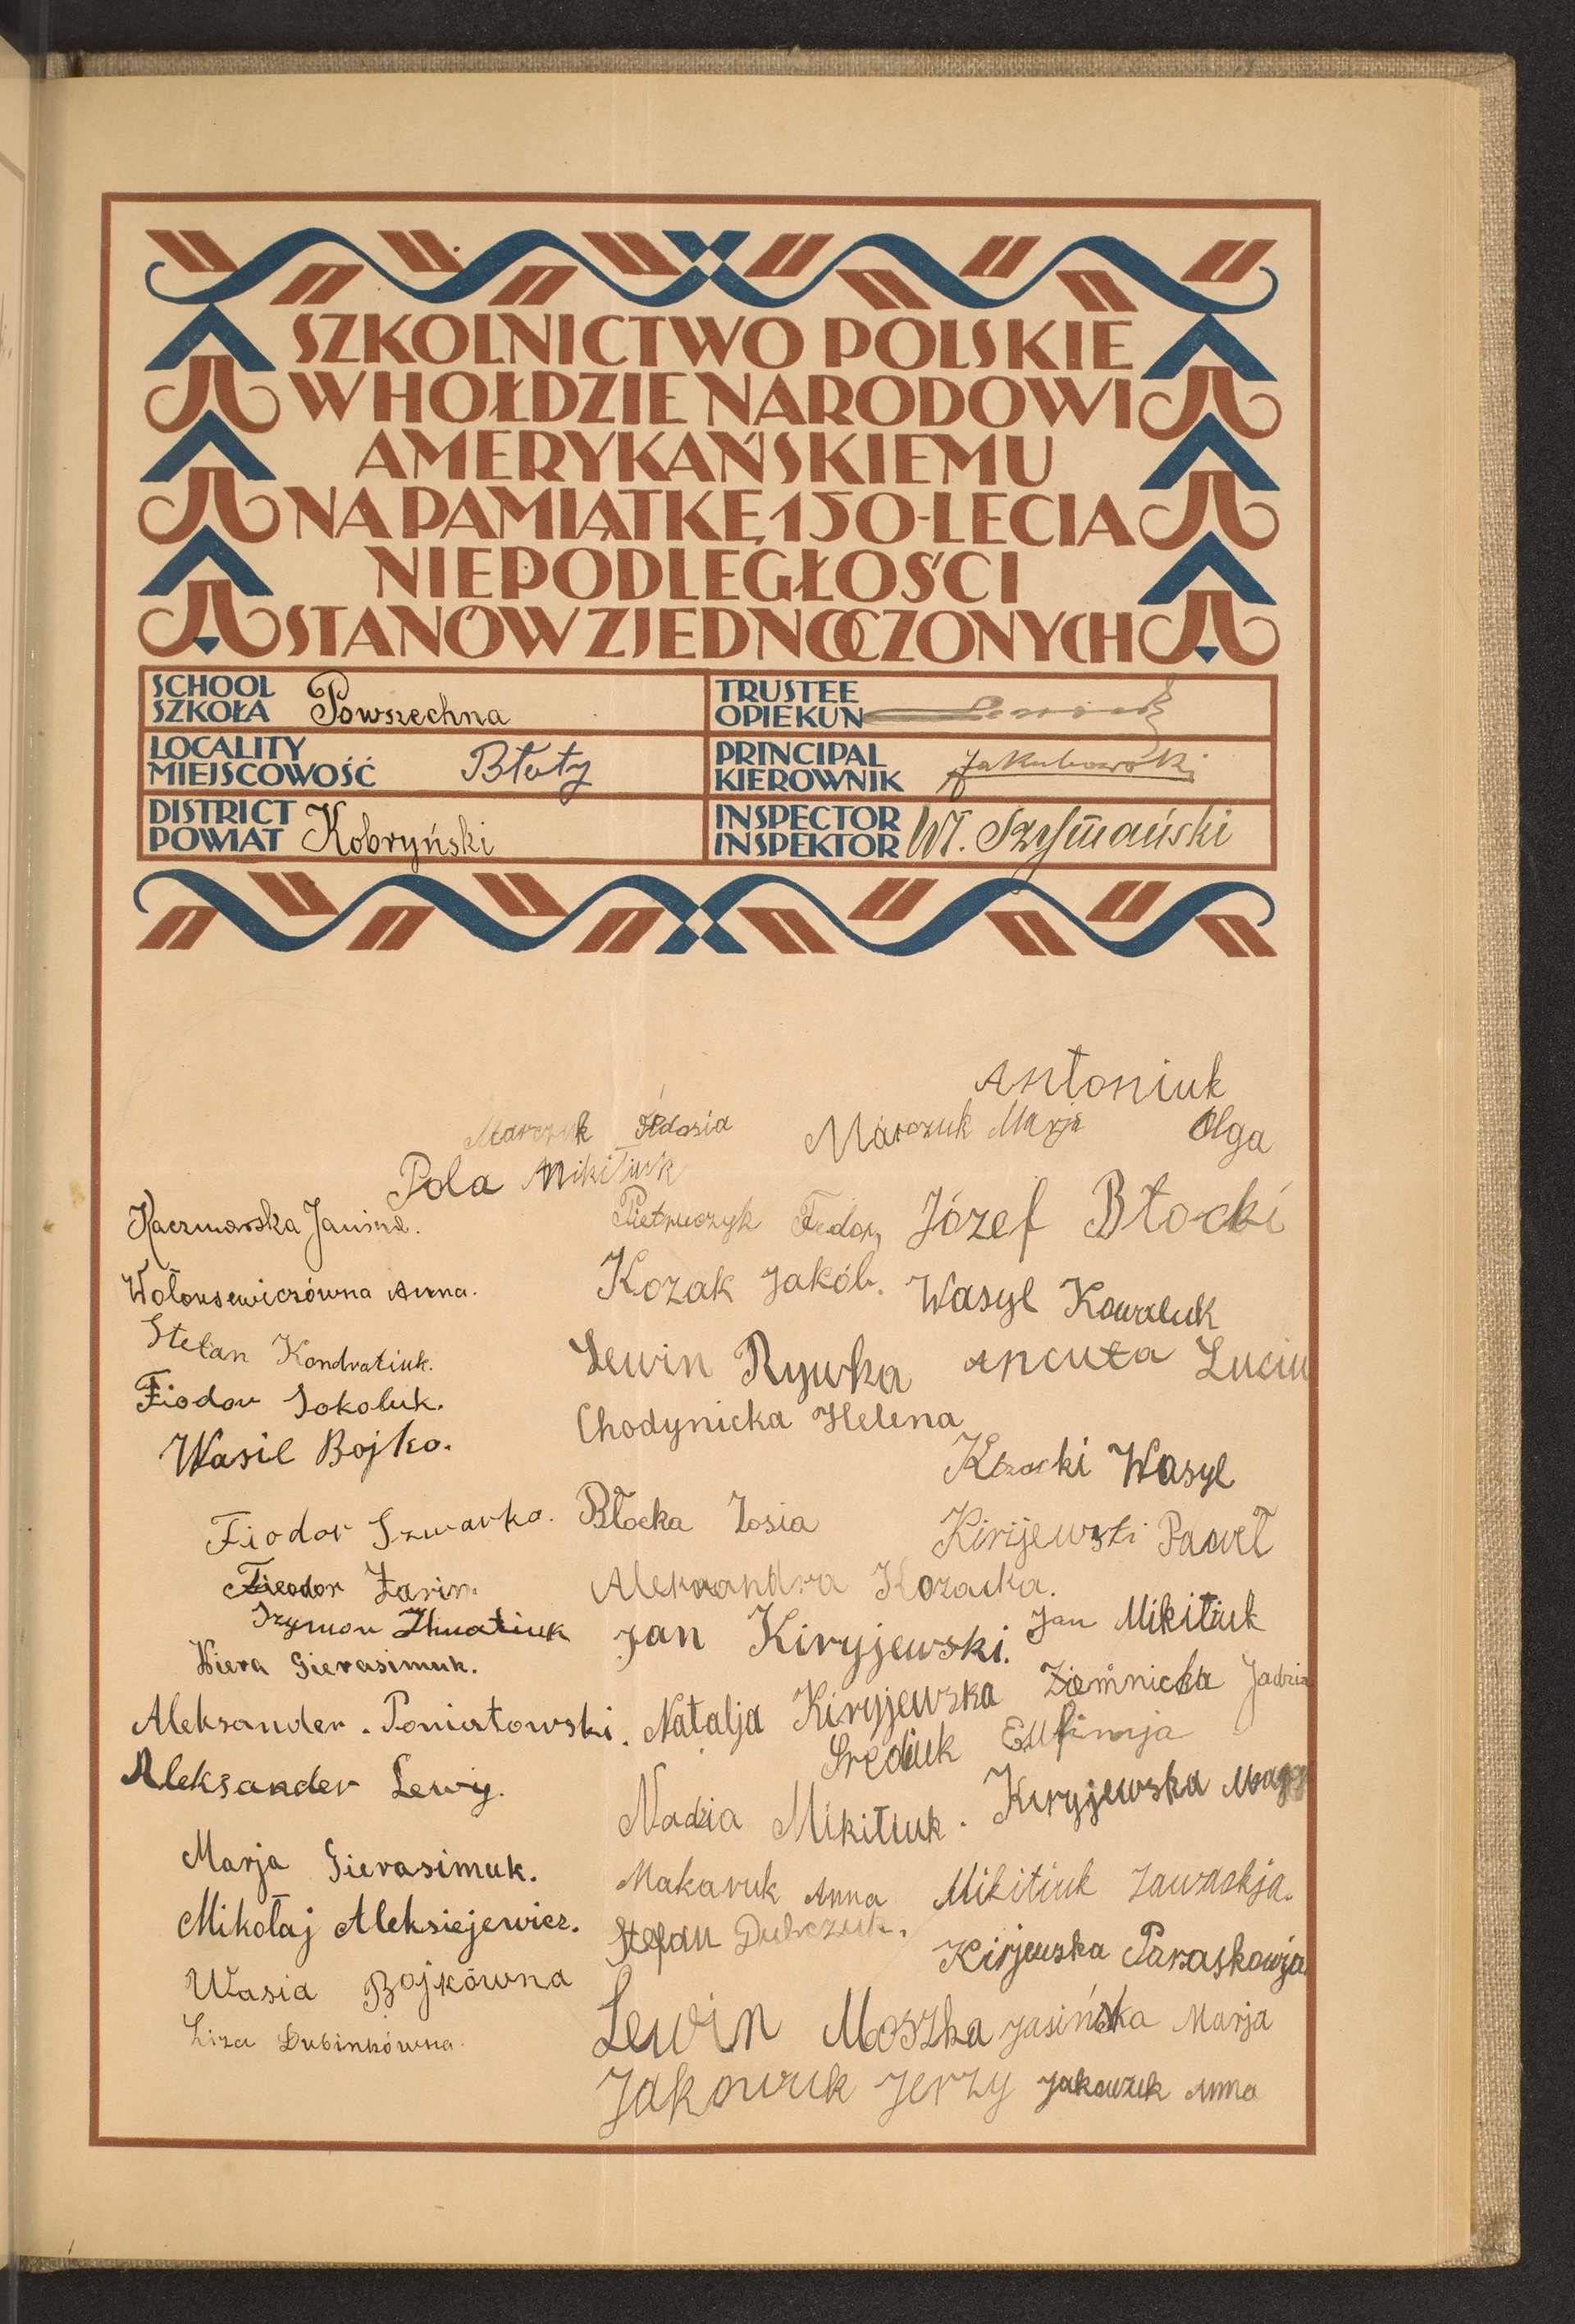 SZKOLNICTWO POLSKIE
W HOŁDZIE NARODOWI
AMERYKAŃSKIEMU
NA PAMIĄTKĘ 150-LECIA
NIEPODLEGŁOŚCI
STANÓW ZJEDNOCZONYCH
SCHOOL
SZKOŁA Powszechna
LOCALITY
MIEJSCOWOŚĆ Błoty
DISTRICT
POWIAT Kobryński
TRUSTEE
OPIEKUN
PRINCIPAL
KIEROWNIK Jakubowski
INSPECTOR
INSPEKTOR Wł. Szymański
Antoniuk
Olga
Marczuk Fedosia
Marczuk Marja
Pola Mikitiuk
Kaczmarska Janina.
Wołousewiczówna Anna.
Stefan Kondratiuk.
Fiodor Sokoluk.
Wasil Bojko.
Fiodor Szwarko.
Fieodor Zarin.
Szymon Ihnatiuk
Wiera Gierasimuk.
Aleksander Poniatowski.
Aleksander Lewy.
Marja Gierasimuk.
Mikołaj Aleksiejewicz.
Wasia Bojkówna
Liza Dubinkówna.
Pietruczyk Fedor,
Kozak Jakób.
Lewin Rywka
Chodynicka Helena
Błocka Zosia
Alexandra Kozacka.
Jan Kiryjewski.
Natalja Kiryjewska
Sreduk Eufimja
Nadzia Mikitiuk.
Makaruk Anna
Stefan Dubczuk.
Lewin Moszka
Jakowuk Jerzy
Józef Błocki
Wasyl Kowaluk
Ancuta
Kozacki Wasyl
Kirijewski Paweł
Jan Mikitiuk
Ziemnicka Jadzia
Kiryjewska
Mikitiuk
Kirjewska Paraskowja
Jasińska Marja
Jakowuk Anna